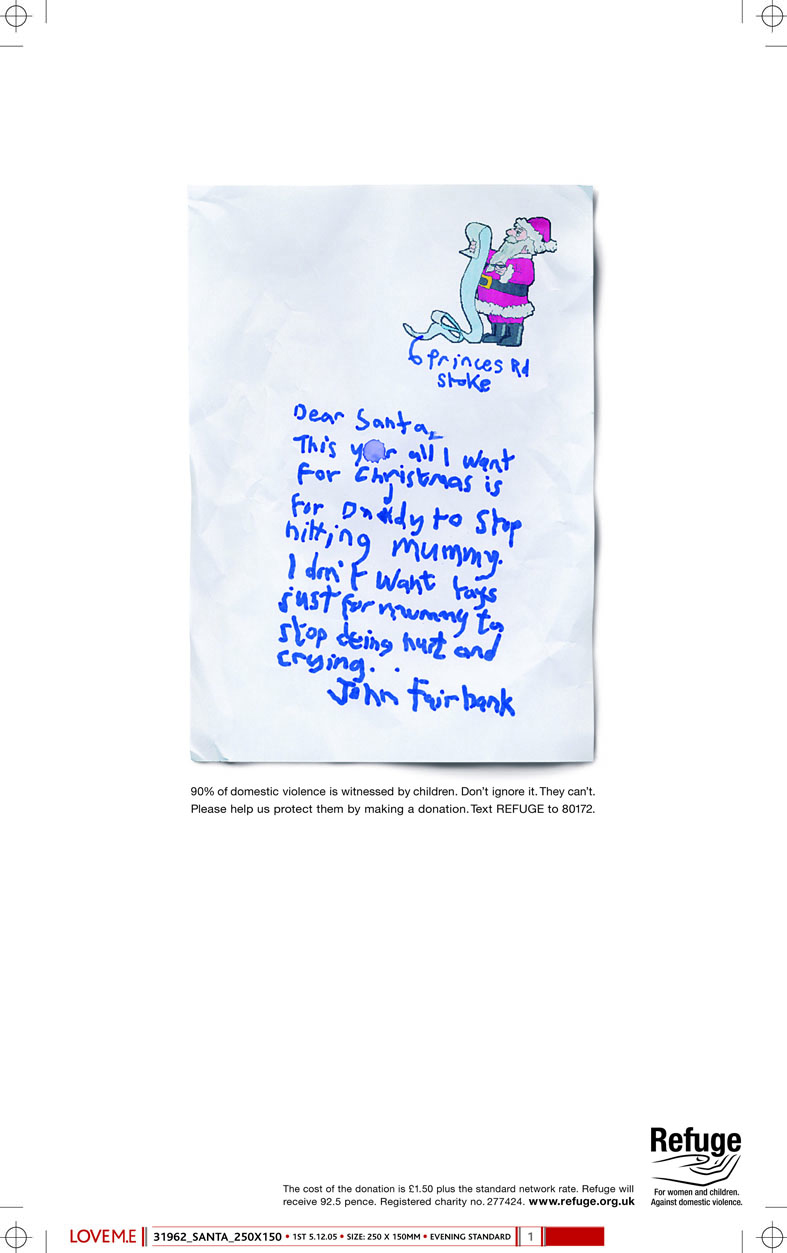 6 Princes Rd
Stoke
Dear Santa,
This year all I want
For Christmas is
for Daddy to Stop
hitting mummy.
I don't want toys
just for mummy to
stop being hurt and
crying. .
John Fairbank
90% of domestic violence is witnessed by children. Don't ignore it. They can't.
Please help us protect them by making a donation. Text REFUGE to 80172.
Refuge
For women and children.
Against domestic violence.
The cost of the donation is £1.50 plus the standard network rate. Refuge will
receive 92.5 pence. Registered charity no. 277424. www.refuge.org.uk
LOVEM.E 31962_SANTA_250X150 • 1ST 5.12.05 • SIZE: 250 X 150MM • EVENING STANDARD 1